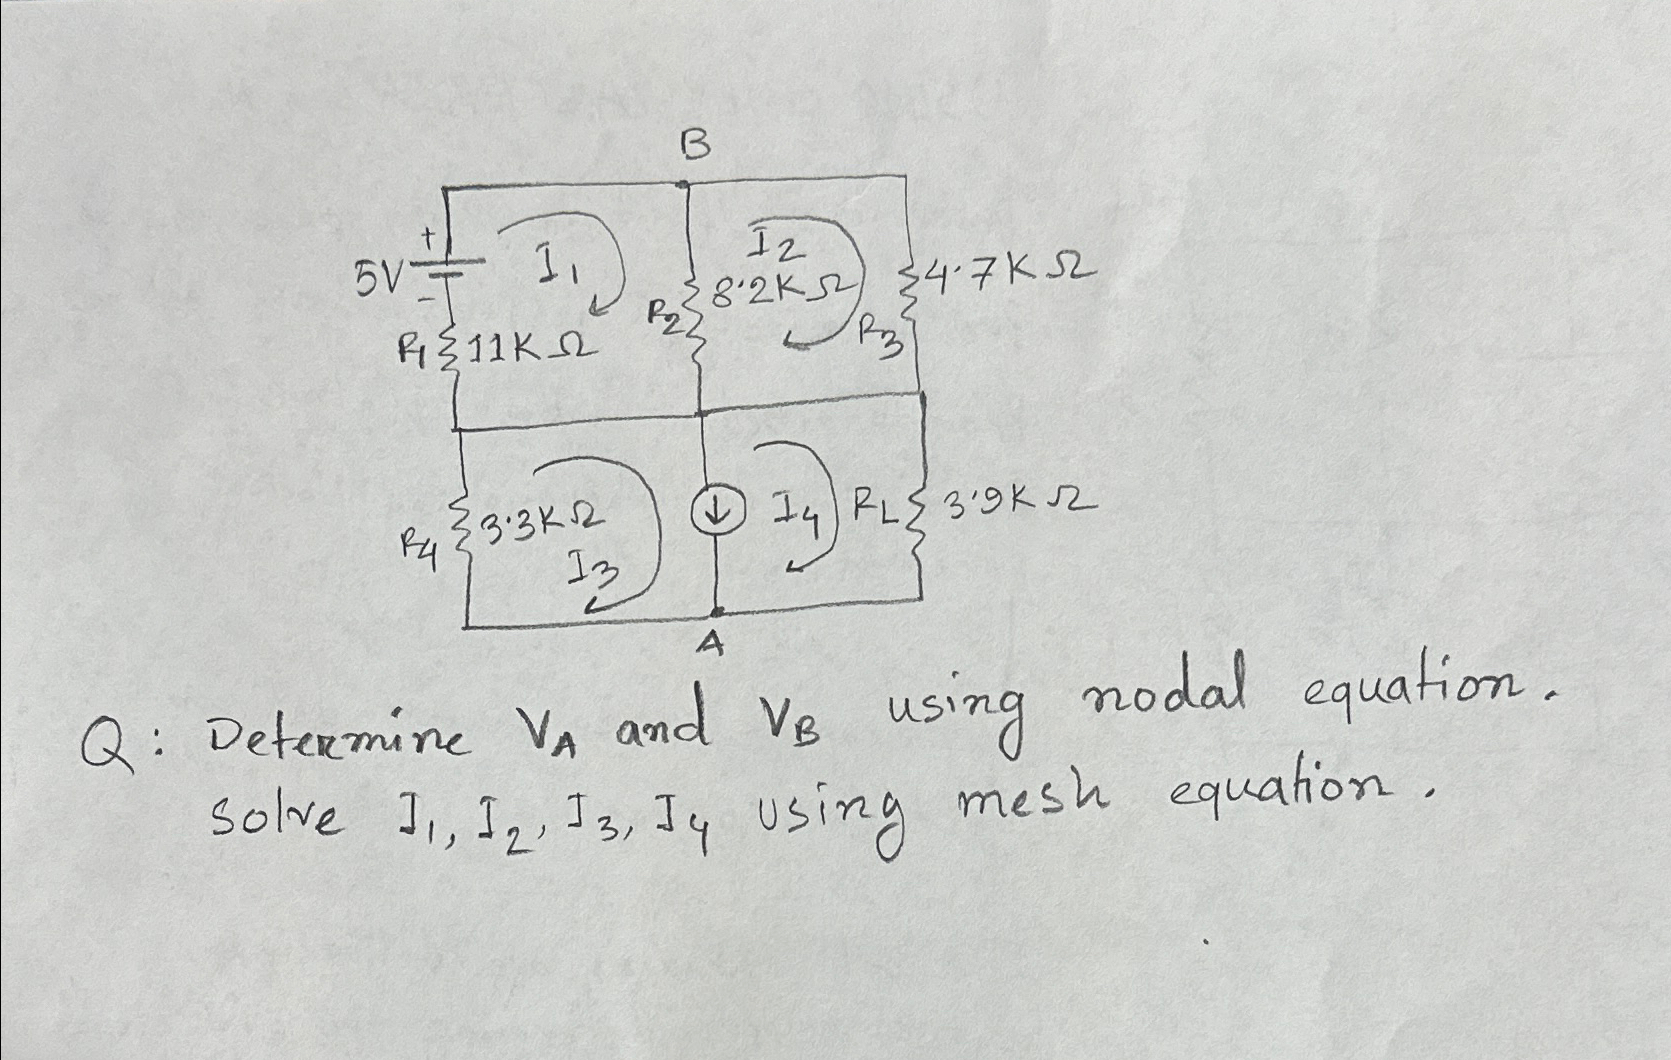 B
5V + -
I1
I2
8.2K Ω
4.7K Ω
R1 11K Ω
R2
R3
R4 3.3K Ω
I3
I4
RL 3.9K Ω
A
Q: Determine VA and VB using nodal equation.
solve I1, I2, I3, I4 using mesh equation.